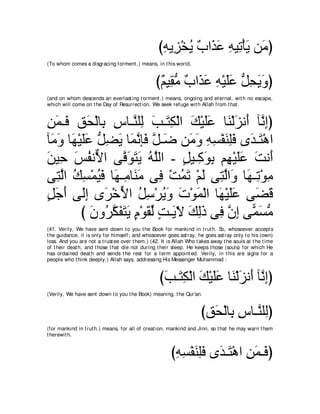 (مَن يَأْتِيهِ عَذَابٌ يُخْزِيهِ)
(To whom comes a disgracing torment,) means, in this world,
(وَيَحِلُّ عَلَيْهِ عَذَابٌ مُّقِيمٌ)
(and on whom descends an everlasting torment.) means, ongoing and eternal, with no escape, which will come on the Day of Resurrection. We seek refuge with Allah from that.
(إِنَّآ أَنزَلْنَا عَلَيْكَ الْكِتَـبَ لِلنَّـاسِ بِالْحَقِّ فَـمَنِ
اهْتَـدَى فَلِنَفْسِهِ وَمَن ضَـلَّ فَإِنَّمَا يَضِلُّ عَلَيْهَا وَمَآ
أَنتَ عَلَيْهِم بِوَكِـيلٍ - اللَّهُ يَتَوَفَّى الاٌّنفُسَ حِينَ
مِوْتِـهَا وَالَّتِى لَمْ تَمُتْ فِى مَنَامِـهَا فَيُمْسِكُ الَّتِى
قَضَى عَلَيْهَا الْمَوْتَ وَيُرْسِلُ الاٍّخْرَى إِلَى أَجَلٍ
مُّسَمًّى إِنَّ فِى ذَلِكَ لاّيَـتٍ لِّقَوْمٍ يَتَفَكَّرُونَ )
(41. Verily, We have sent down to you the Book for mankind in truth. So, whosoever accepts the guidance, it is only for himself; and whosoever goes astray, he goes astray only to his (own) loss. And you are not a trustee over them.) (42. It is Allah Who takes away the souls at the time of their death, and those that die not during their sleep. He keeps those (souls) for which He has ordained death and sends the rest for a term appointed. Verily, in this are signs for a people who think deeply.) Allah says, addressing His Messenger Muhammad :
(إِنَّآ أَنزَلْنَا عَلَيْكَ الْكِتَـبَ)
(Verily, We have sent down to you the Book) meaning, the Qur'an.
(لِلنَّـاسِ بِالْحَقِّ)
(for mankind in truth.) means, for all of creation, mankind and Jinn, so that he may warn them therewith.
(فَـمَنِ اهْتَـدَى فَلِنَفْسِهِ)